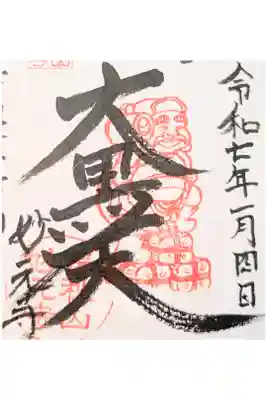 令和七年一月四日
大黒天
妙元寺